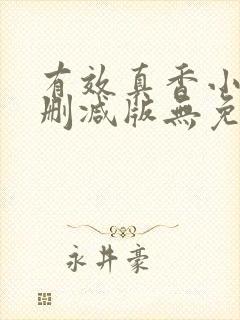 有效真香小
删减版無免
永井豪